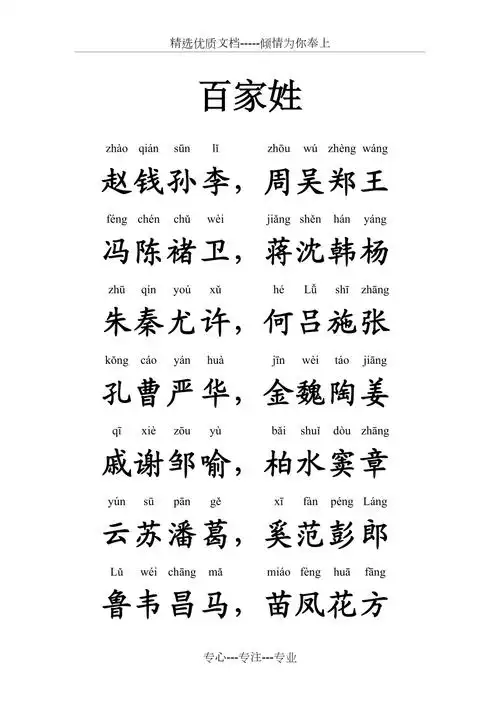 精选优质文档-----倾情为你奉上
百家姓
zhào qián sūn lǐ zhōu wú zhèng wáng
赵钱孙李，周吴郑王
féng chén chǔ wèi jiǎng shěn hán yáng
冯陈褚卫，蒋沈韩杨
zhū qín yoú xǔ hé Lǚ shī zhāng
朱秦尤许，何吕施张
kǒng cáo yán huà jīn wèi táo jiāng
孔曹严华，金魏陶姜
qī xiè zōu yù bǎi shuǐ dòu zhāng
戚谢邹喻，柏水窦章
yún sū pān gě xī fàn péng Láng
云苏潘葛，奚范彭郎
Lǔ wéi chāng mǎ miáo fèng huā fāng
鲁韦昌马，苗凤花方
专心---专注---专业